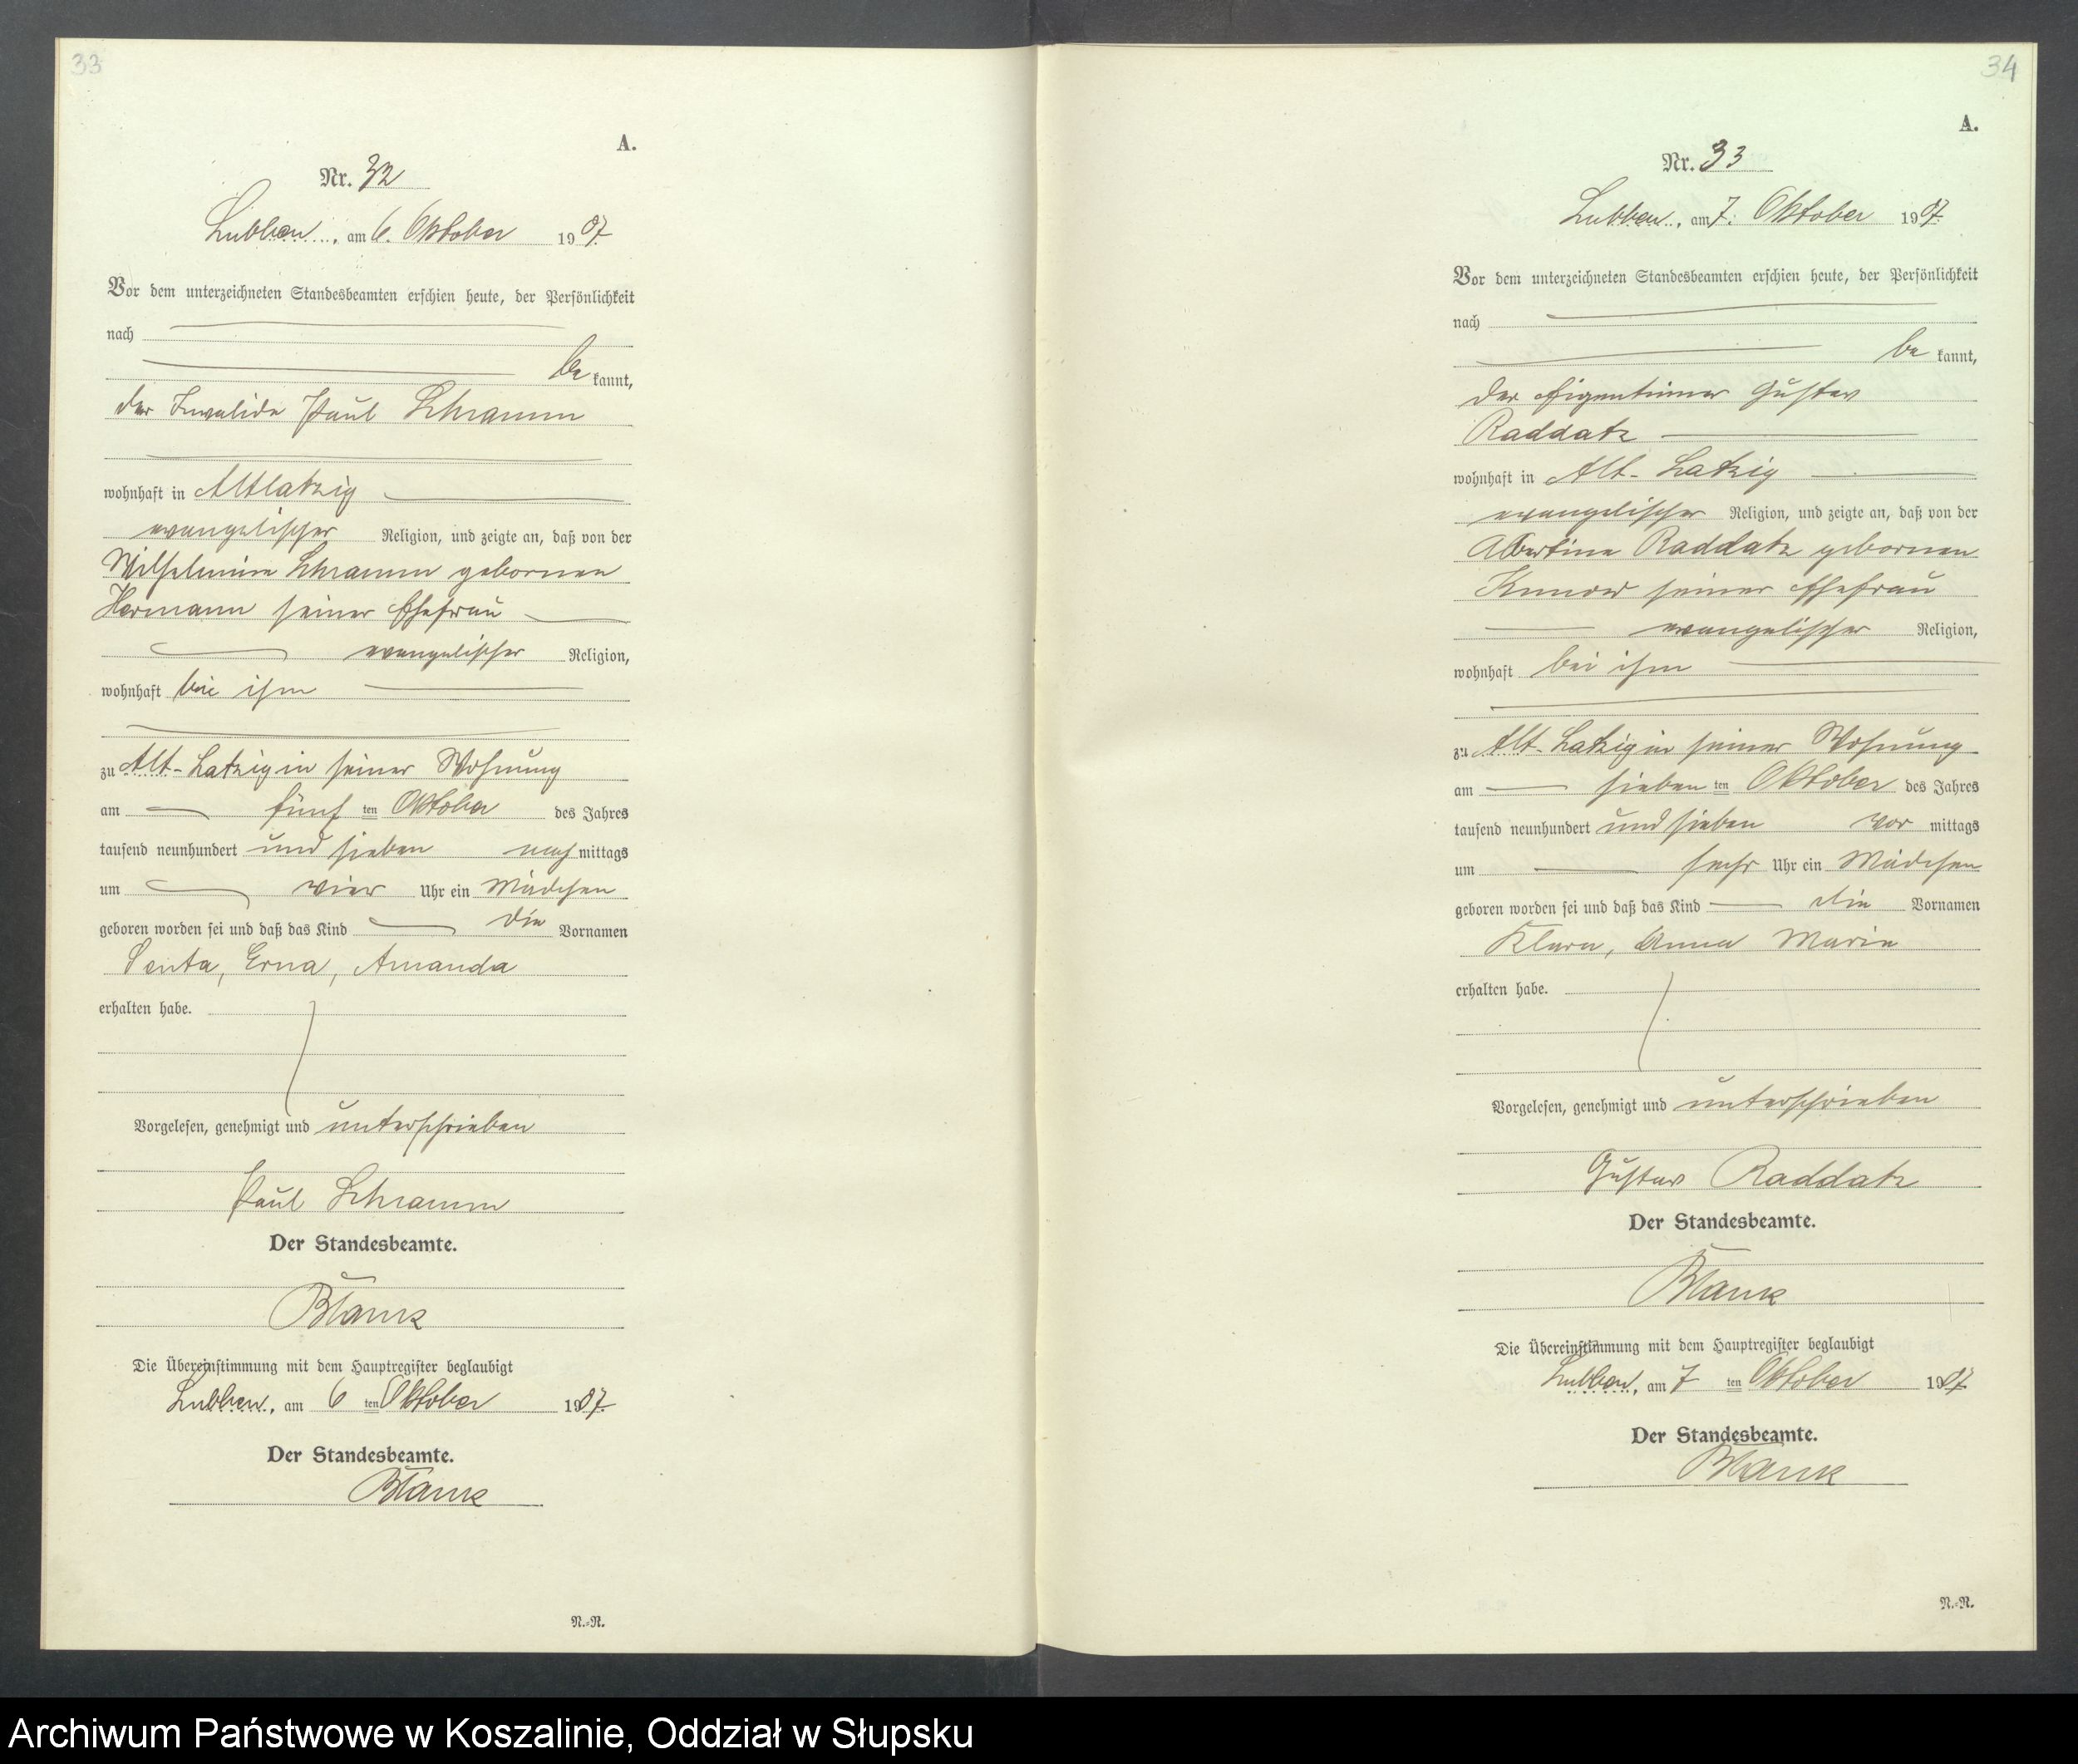 33
A.
Nr. 32
Lubben, am 6. Oktober 1907.
Vor dem unterzeichneten Standesbeamten erschien heute, der Persönlichkeit
nach
be kannt,
der Invalide Paul Schramm
wohnhaft in Altlatzig
evangelischer Religion, und zeigte an, daß von der
Wilhelmine Schramm gebornen
Hermann seiner Ehefrau
evangelischer Religion,
wohnhaft bei ihm
zu Alt-Latzig in seiner Wohnung
am fünf ten Oktober des Jahres
tausend neunhundert und sieben nach mittags
um vier Uhr ein Mädchen
geboren worden sei und daß das Kind die Vornamen
Senta, Erna, Amanda
erhalten habe.
Vorgelesen, genehmigt und unterschrieben
Paul Schramm
Der Standesbeamte.
Blank
Die Übereinstimmung mit dem Hauptregister beglaubigt
Lubben, am 6 ten Oktober 1907.
Der Standesbeamte.
Blank
N.=R.
34
A.
Nr. 33
Lubben, am 7. Oktober 1907.
Vor dem unterzeichneten Standesbeamten erschien heute, der Persönlichkeit
nach
be kannt,
der Eigentümer Gustav
Raddatz
wohnhaft in Alt-Latzig
evangelischer Religion, und zeigte an, daß von der
Albertine Raddatz gebornen
seiner Ehefrau
evangelischer Religion,
wohnhaft bei ihm
zu Alt-Latzig in seiner Wohnung
am sieben ten Oktober des Jahres
tausend neunhundert und sieben vor mittags
um sechs Uhr ein Mädchen
geboren worden sei und daß das Kind die Vornamen
Klara, Anna Marie
erhalten habe.
Vorgelesen, genehmigt und unterschrieben
Gustav Raddatz
Der Standesbeamte.
Blank
Die Übereinstimmung mit dem Hauptregister beglaubigt
Lubben, am 7 ten Oktober 1907.
Der Standesbeamte.
Blank
N.=R.
Archiwum Państwowe w Koszalinie, Oddział w Słupsku